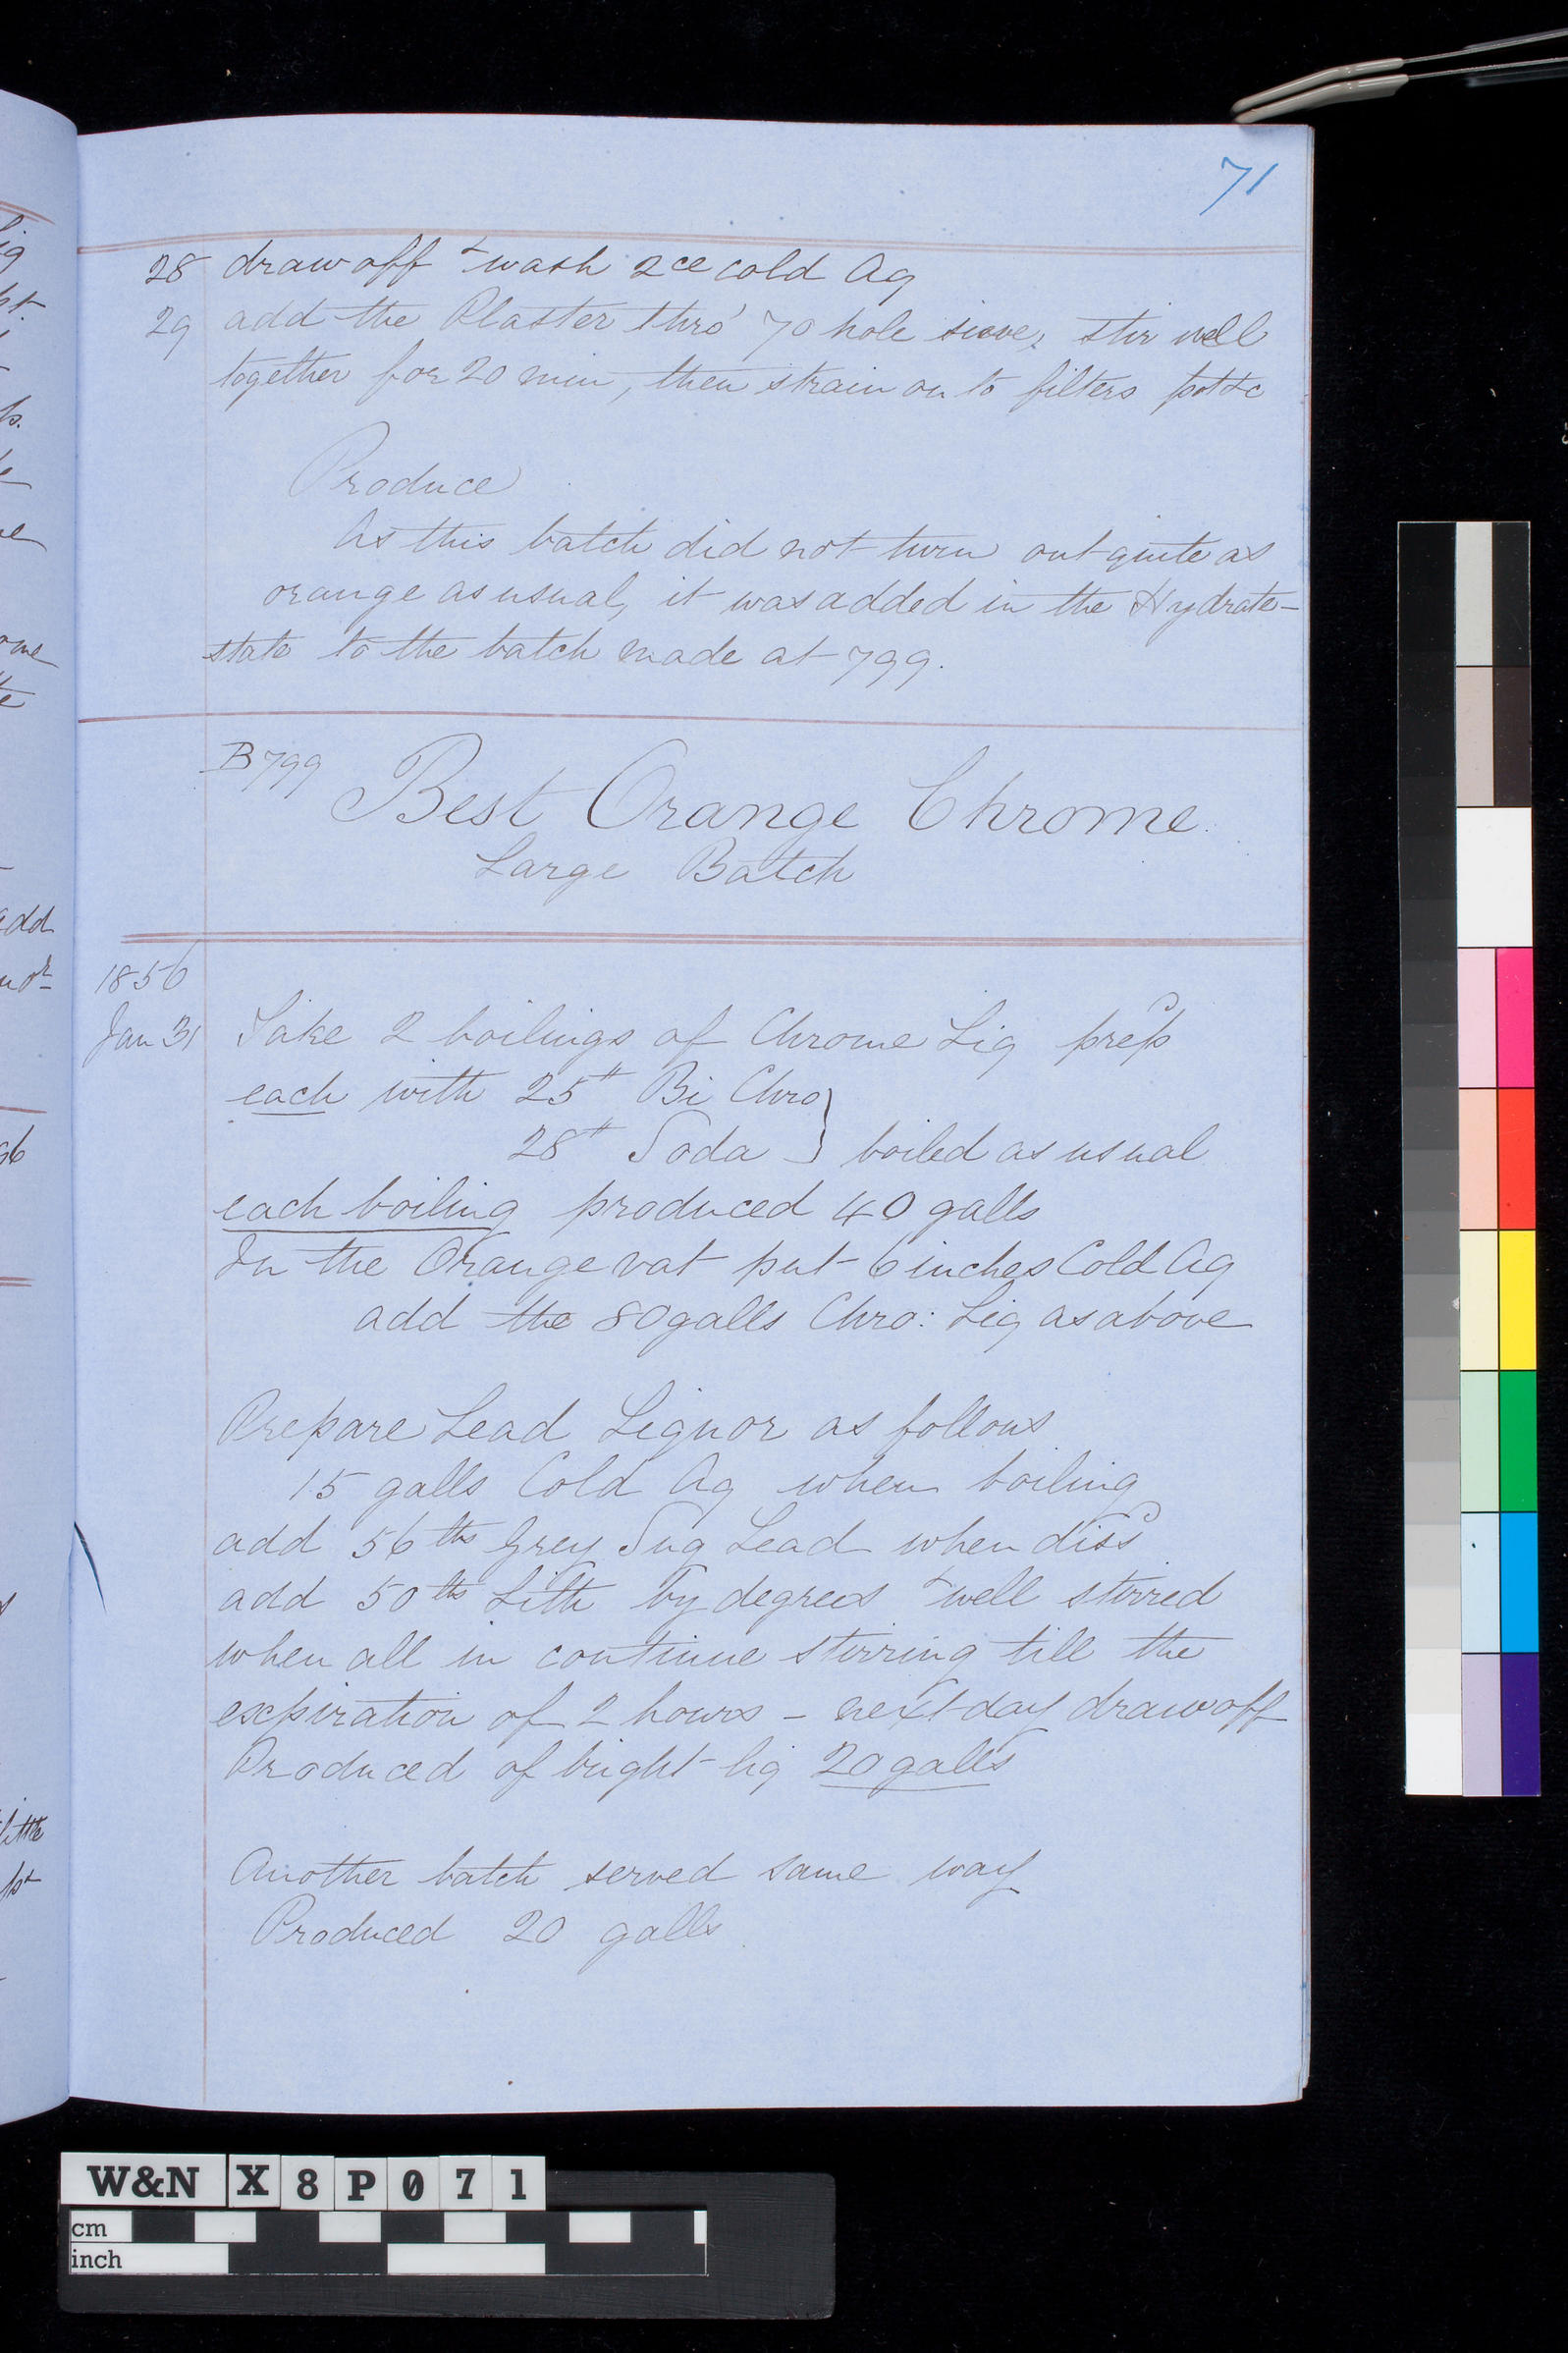 71
28 draw off & wash 2ce cold Aq
29 add the Plaster thro' 70 hole sieve, stir well
together for 20 min, then strain on to filters pot &c
Produce
As this batch did not turn out quite as
orange as usual, it was added in the Hydrate-
state to the batch made at 799.
B799
Best Orange Chrome.
Large Batch
1856
Jan 31 Take 2 boilings of Chrome Liq prepd
each with 25 lb Bi Chro
28 lb Soda } boiled as usual
each boiling produced 40 galls
In the Orange vat put 6 inches Cold Aq
add the 80 galls Chro: Liq as above
Prepare Lead Liquor as follows
15 galls Cold Aq when boiling
add 56 lbs Grey Sug Lead when dissd
add 50 lbs Lith by degrees & well stirred
when all in continue stirring till the
expiration of 2 hours - next day draw off
Produced of bright liq 20 galls
Another batch served same way
Produced 20 galls
W&N X8P071
cm
inch